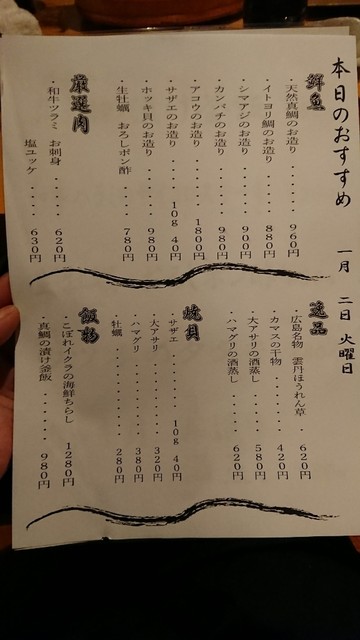 本日のおすすめ 一月 二日 火曜日
鮮魚
・天然真鯛のお造り・・・・・・960円
・イトヨリ鯛のお造り・・・・・880円
・シマアジのお造り・・・・・・900円
・カンパチのお造り・・・・・・980円
・アコウのお造り・・・・・・1800円
・サザエのお造り・・・10g 40円
・ホッキ貝のお造り・・・・・980円
・生牡蠣 おろしポン酢・・・・780円
厳選肉
・和牛ツラミ お刺身・・・・・620円
塩ユッケ・・・・・630円
逸品
・広島名物 雲丹ほうれん草 620円
・カマスの干物・・・・・・・420円
・大アサリの酒蒸し・・・・・580円
・ハマグリの酒蒸し・・・・・620円
焼貝
・サザエ・・・・・・・10g 40円
・大アサリ・・・・・・・・320円
・ハマグリ・・・・・・・・380円
・牡蠣・・・・・・・・・・280円
飯物
・こぼれイクラの海鮮ちらし 1280円
・真鯛の漬け釜飯・・・・・・980円